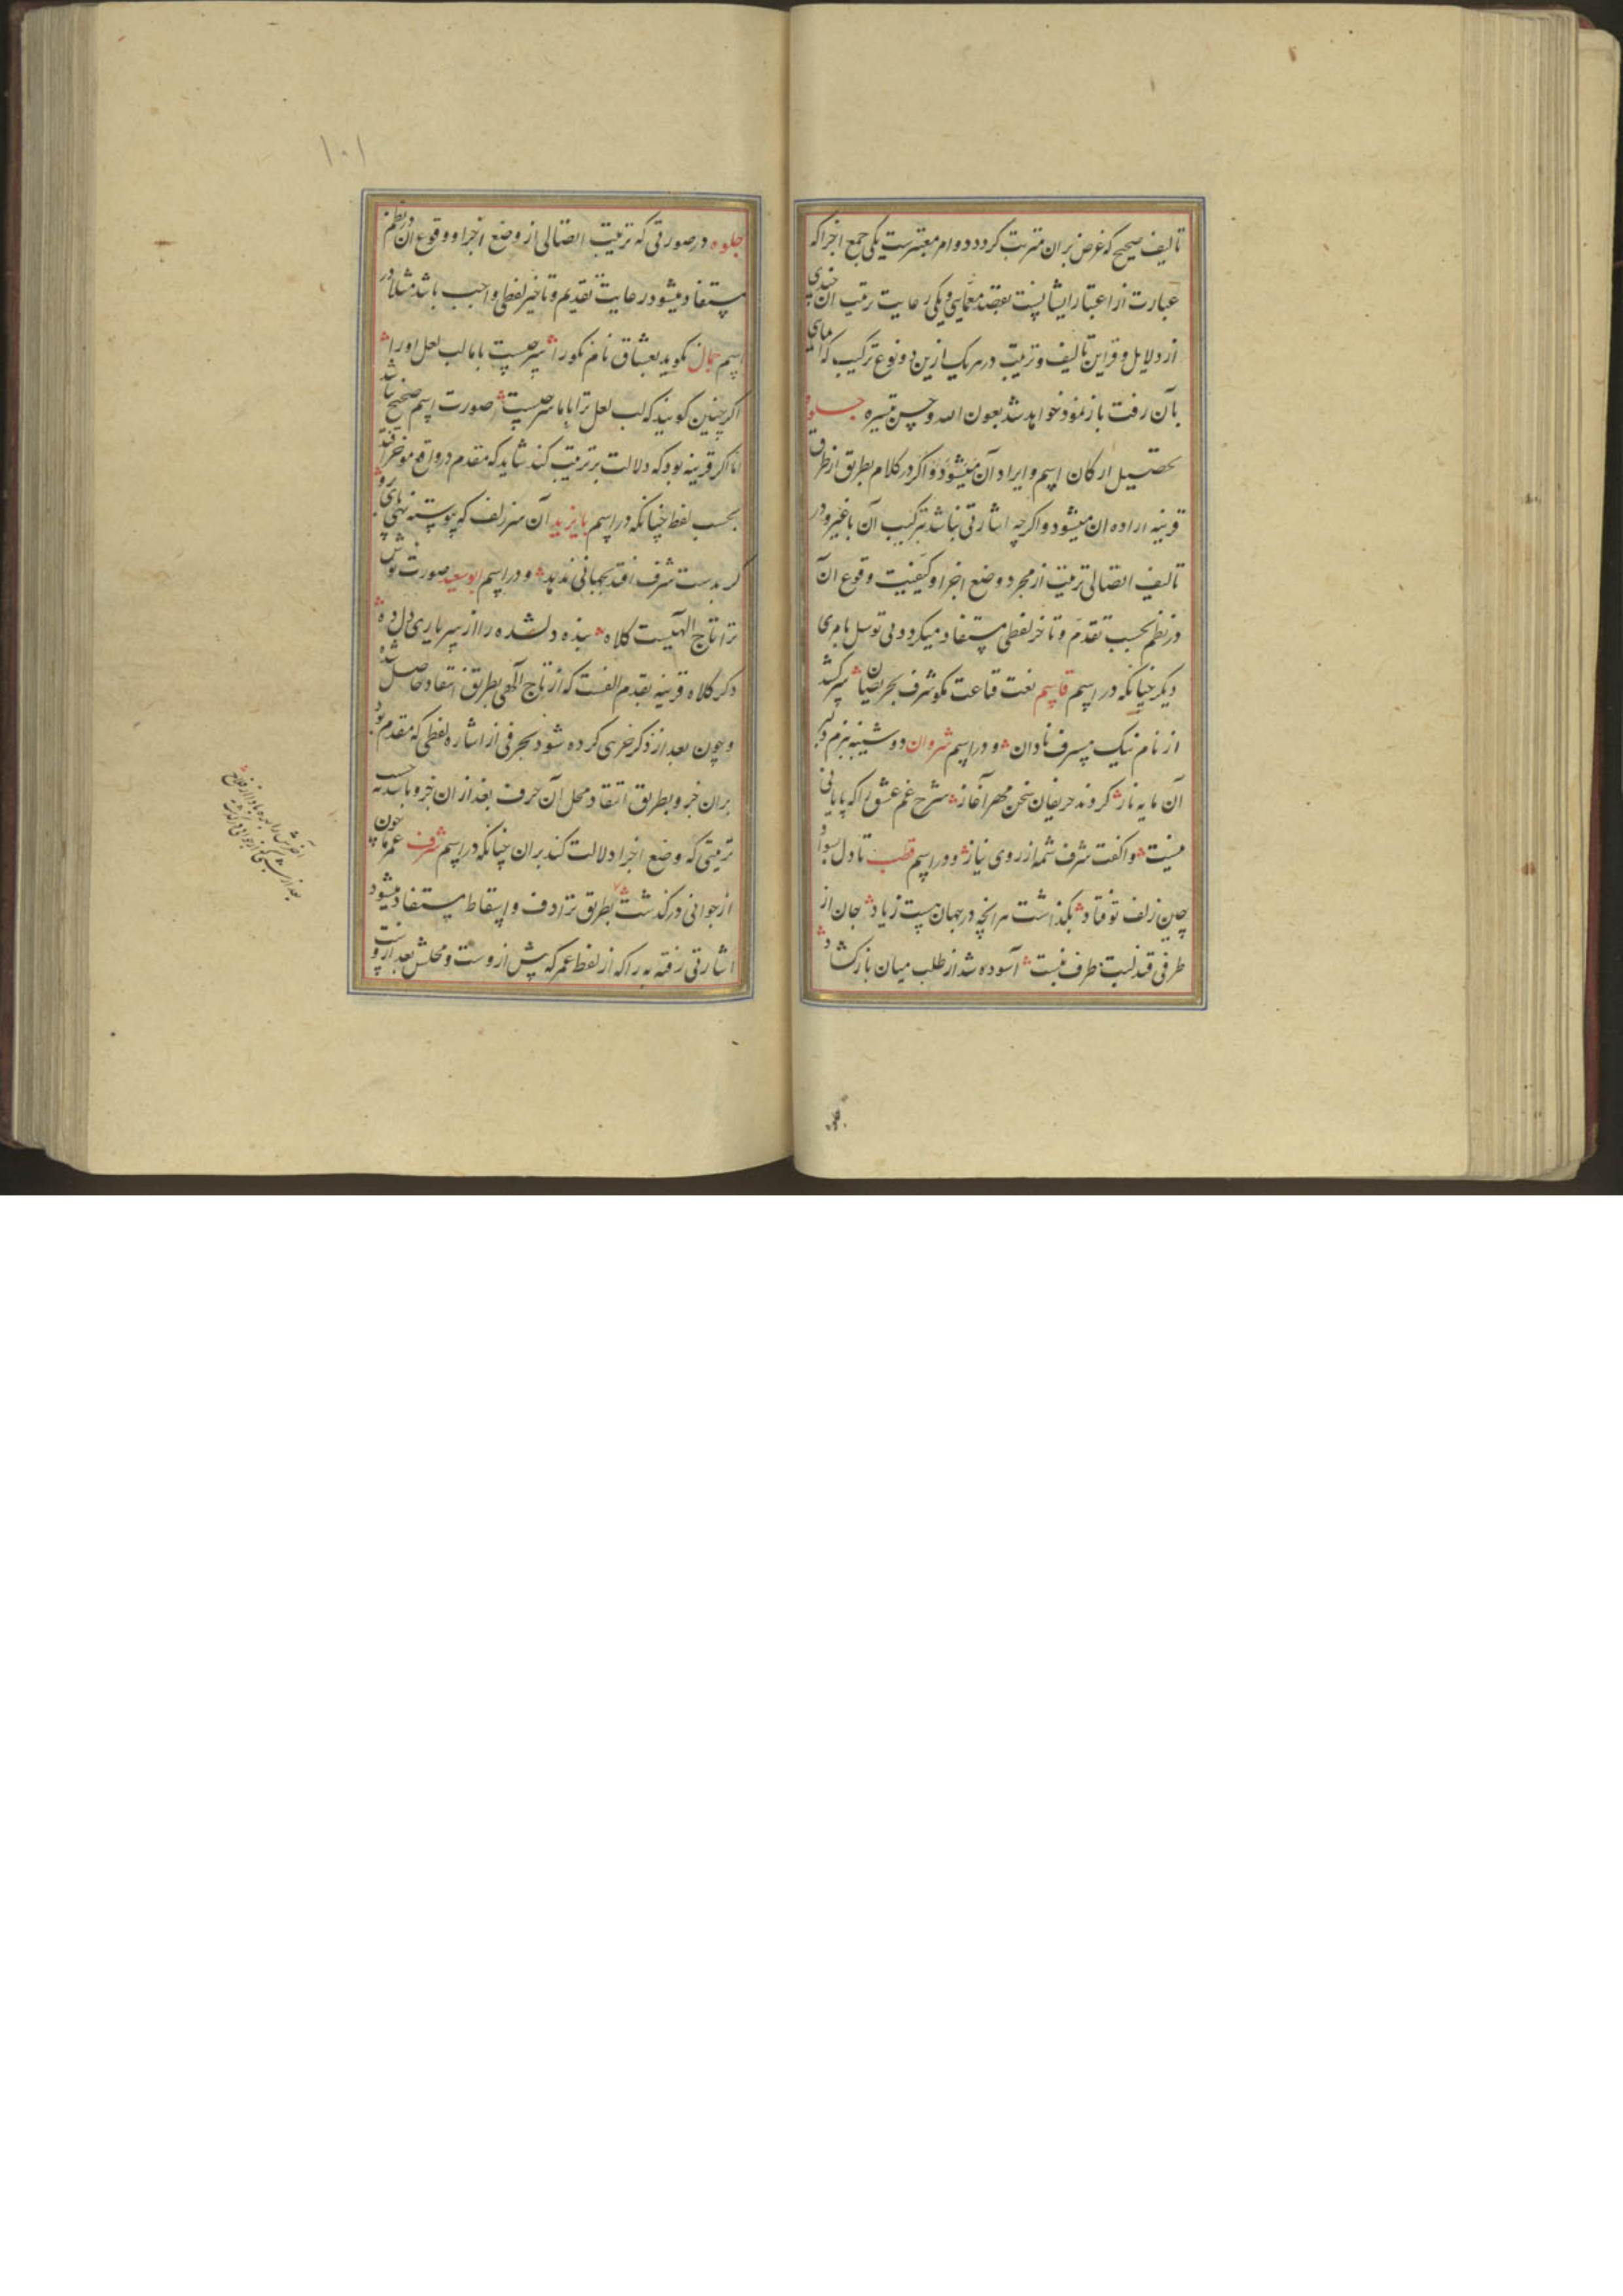 تالیف صحیح که غرض بران مترتب کردد دو امر معتبرست یکی جمع اجزا که
عبارت از اعتبار ایشانست بقصد معمایی و یکی رعایت ترتیب آن
از دلایل و قراین تالیف و ترتیب در هر یک ازین دو نوع ترکیب که
بآن رفت باز نموده خواهد شد بعون الله و حسن تیسیره جلوه
تحصیل ارکان اسم و ایراد آن میشود و اکر در کلام بطریق از طرق
قرینه اراده ان میشود و اکرچه اشارتی نباشد بترکیب آن با غیر و در
تالیف اتصالی ترتیب از مجرد وضع اجزا و کیفیت وقوع آن
در نظم بحسب تقدم و تاخر لفظی مستفاد میکردد بی توسل بامری
دیکر چنانکه در اسم قاسم نعت قناعت مکو شرف بحریصان سر کشد
از نام نیک مسرف نادان و در اسم شروان دوشینه ببزم دلبر
آن مایه ناز کردند حریفان سخن مهر آغاز شرح غم عشق را که پایانی
نیست وا کفت شرف شمه از روی نیاز و در اسم قطب تا دل بسودا
چین زلف تو فتاد بکذاشت هر انچه در جهان هست زیاد جان از
طرفی قد لبت طرف نبست آسوده شد از طلب میان باز کشاد
۱۰۱
جلوه در صورتی که ترتیب اتصالی از وضع اجزا و وقوع آن در نظم
مستفاد میشود رعایت تقدیم و تاخیر لفظی واجب باشد مثلا در
اسم جمال بکوید بعشاق نام نکو را سر چیست با ما لب لعل او را
اکر چنین کویند که لب لعل ترا با ما سر چیست صورت اسم صحیح نباشد
اما اکر قرینه بود که دلالت بر ترتیب کند شاید که مقدم در واقع موخر افتد
بحسب لفظ چنانکه در اسم بایزید آن سر زلف که پیوسته نهی
کر بدست شرف افتد بجهانی ندهد و در اسم ابوسعید صورت نوش
ترا تاج الهیست کلاه بنده دلشده را از سر یاری دل ده
ذکر کلاه قرینه تقدم الفست که از تاج الهی بطریق انتقاد حاصل شده
و چون بعد از ذکر جزئی کرده شود بحرفی از اشاره لفظی که مقدم بود
بران جزو بطریق انتقاد محل آن حرف بعد از ان جزو باشد بحسب
ترتیبی که وضع اجزا دلالت کند بران چنانکه در اسم شرف عمر ما چون
از جوانی درکذشت بطریق ترادف و اسقاط مستفاد میشود
اشارتی رفته به را که از لفظ عمر که پیش از وست و محلش بعد از وست